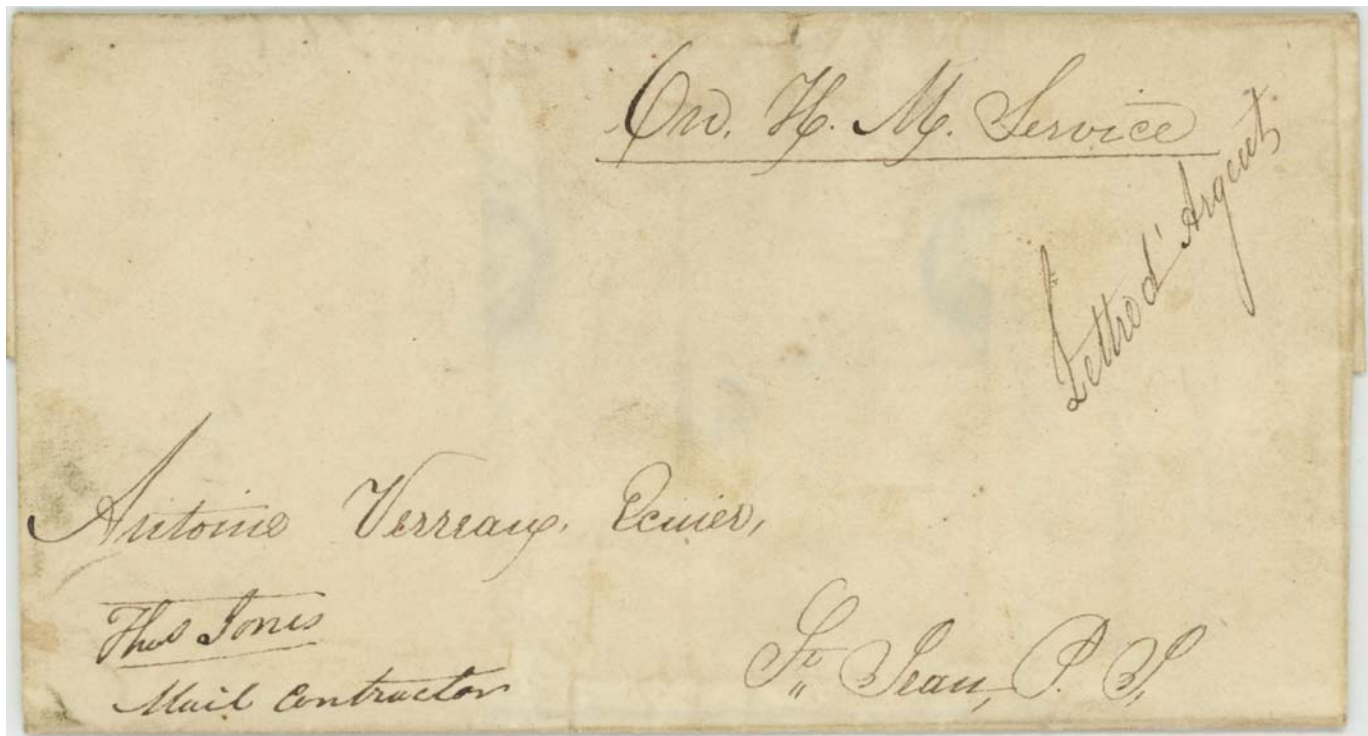 On. H. M. Service
Lettre d'Argent
Antoine Verreau, Ecuier,
Thos Jones
Mail Contractor
St. Jean, P. J.